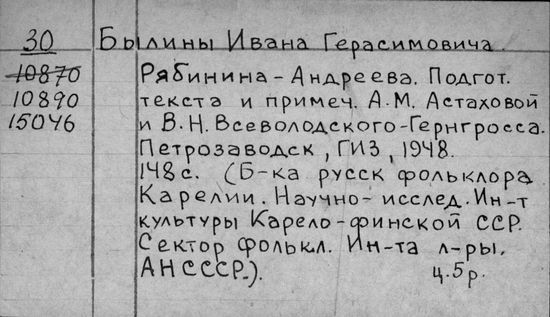 30 Былины Ивана Герасимовича.
10870 Рябинина-Андреева. Подгот.
10890 текста и примеч. А.М. Астаховой
15046 и В.Н. Всеволодского-Гернгросса.
Петрозаводск, ГИЗ, 1948.
148 с. (Б-ка русск фольклора
Карелии. Научно-исслед. Ин-т
культуры Карело-финской ССР.
Сектор фолькл. Ин-та л-ры,
АНСССР.). ц. 5 р.